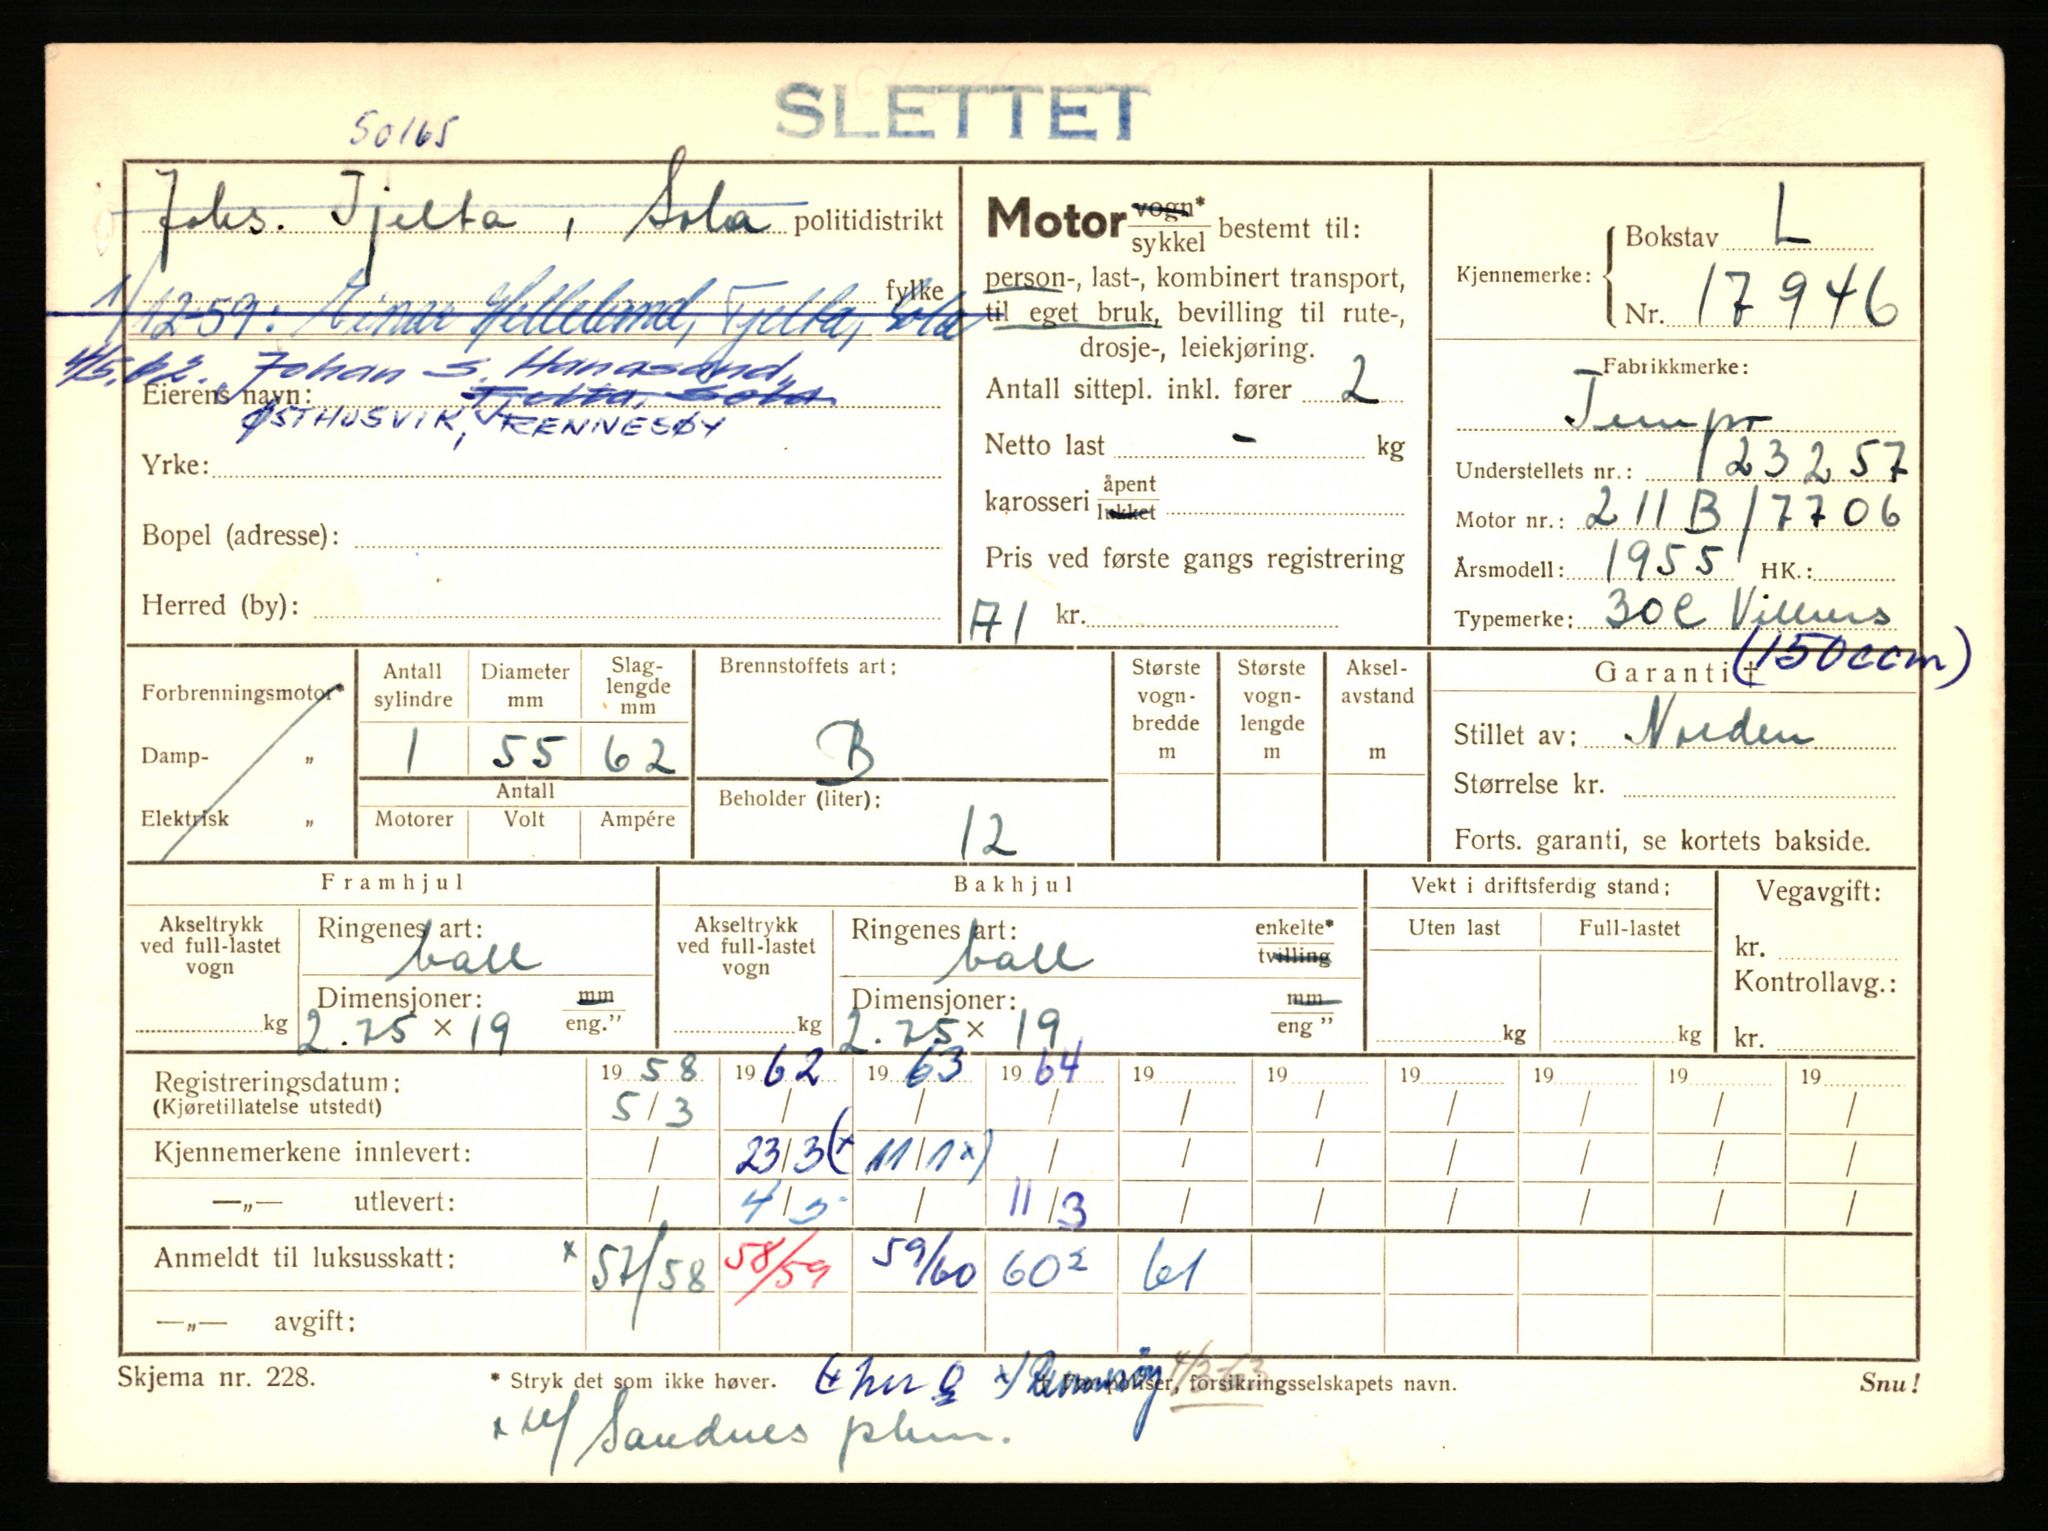 SLETTET
50165
Johs. Tjelta, Sola politidistrikt
fylke
1/12-59: Einar Helleland, Tjelta, Sola
4/5.62. Johan S. Hanasand,
Eierens navn: Tjelta, Sola
ØSTHUSVIK, RENNESØY
Yrke:
Bopel (adresse):
Herred (by):
Motor vogn* sykkel bestemt til:
person-, last-, kombinert transport,
til eget bruk, bevilling til rute-,
drosje-, leiekjøring.
Antall sittepl. inkl. fører 2
Netto last - kg
karosseri åpent lukket
Pris ved første gangs registrering
A1 kr.
Kjennemerke: Bokstav L
Nr. 17946
Fabrikkmerke:
Tempo
Understellets nr.: 123257
Motor nr.: 211B/7706
Årsmodell: 1955 HK.:
Typemerke: 30C Villiers
(150ccm)
Forbrenningsmotor*
Damp- „
Elektrisk „
Antall sylindre Diameter mm Slag-lengde mm
1 55 62
Antall
Motorer Volt Ampére
Brennstoffets art:
B
Beholder (liter):
12
Største vogn-bredde m
Største vogn-lengde m
Aksel-avstand m
Garanti †
Stillet av: Norden
Størrelse kr.
Forts. garanti, se kortets bakside.
Framhjul
Akseltrykk ved full-lastet vogn
kg
Ringenes art:
ball
Dimensjoner: mm eng.”
2.75 × 19
Bakhjul
Akseltrykk ved full-lastet vogn
kg
Ringenes art: enkelte* tvilling
ball
Dimensjoner: mm eng ”
2.75 × 19
Vekt i driftsferdig stand:
Uten last Full-lastet
kg kg
Vegavgift:
kr.
Kontrollavg.:
kr.
Registreringsdatum: 1958 1962 1963 1964 19 19 19 19 19 19
(Kjøretillatelse utstedt) 5/3 / / / / / / / / /
Kjennemerkene innlevert: / 23/3(x 11/1x) / / / / / / /
—„— utlevert: / 4/5 / 11/3 / / / / / /
Anmeldt til luksusskatt: x 57/58 58/59 59/60 60² 61
—„— avgift:
Skjema nr. 228.
* Stryk det som ikke høver.
x) Rennesøy 4/3-63
forsikringsselskapets navn.
Snu!
Sandnes